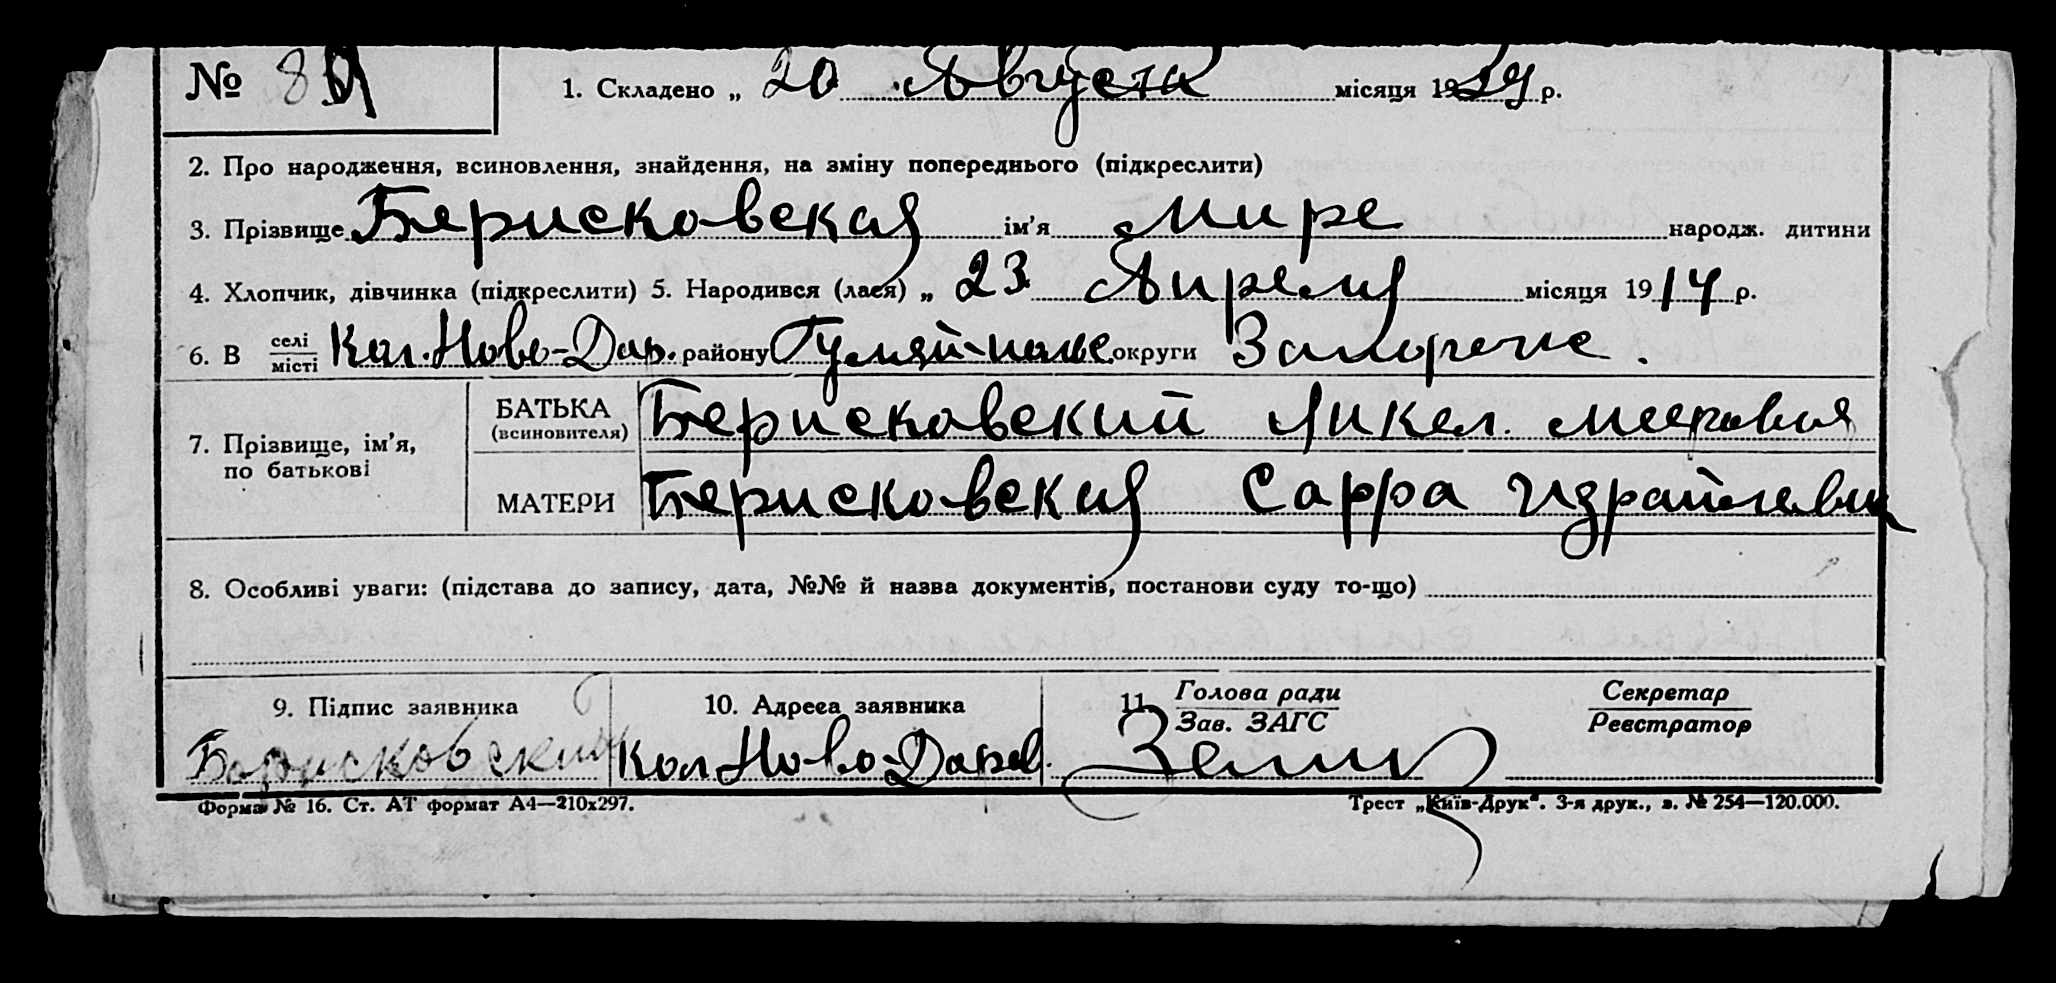 № 89 1. Складено „ 20 Августа місяця 1929 р.
2. Про народження, всиновлення, знайдення, на зміну попереднього (підкреслити)
3. Прізвище Берисковская ім’я Мире народж. дитини
4. Хлопчик, дівчинка (підкреслити) 5. Народився (лася) „ 23 Апреля місяця 1914 р.
6. В селі/місті Кол. Ново-Дар. району Гуляй-поле округи Запорожс.
7. Прізвище, ім’я, по батькові
БАТЬКА (всиновителя) Берисковский Янкел. Мееровия
МАТЕРИ Берисковская Сарра Израйлевн
8. Особливі уваги: (підстава до запису, дата, №№ й назва документів, постанови суду то-що)
9. Підпис заявника 10. Адреса заявника 11. Голова ради / Зав. ЗАГС Секретар / Реєстратор
Борисковский Кол Ново-Даров.
Форма № 16. Ст. АТ формат А4—210х297. Трест „Київ-Друк“. 3-я друк., з. № 254—120.000.